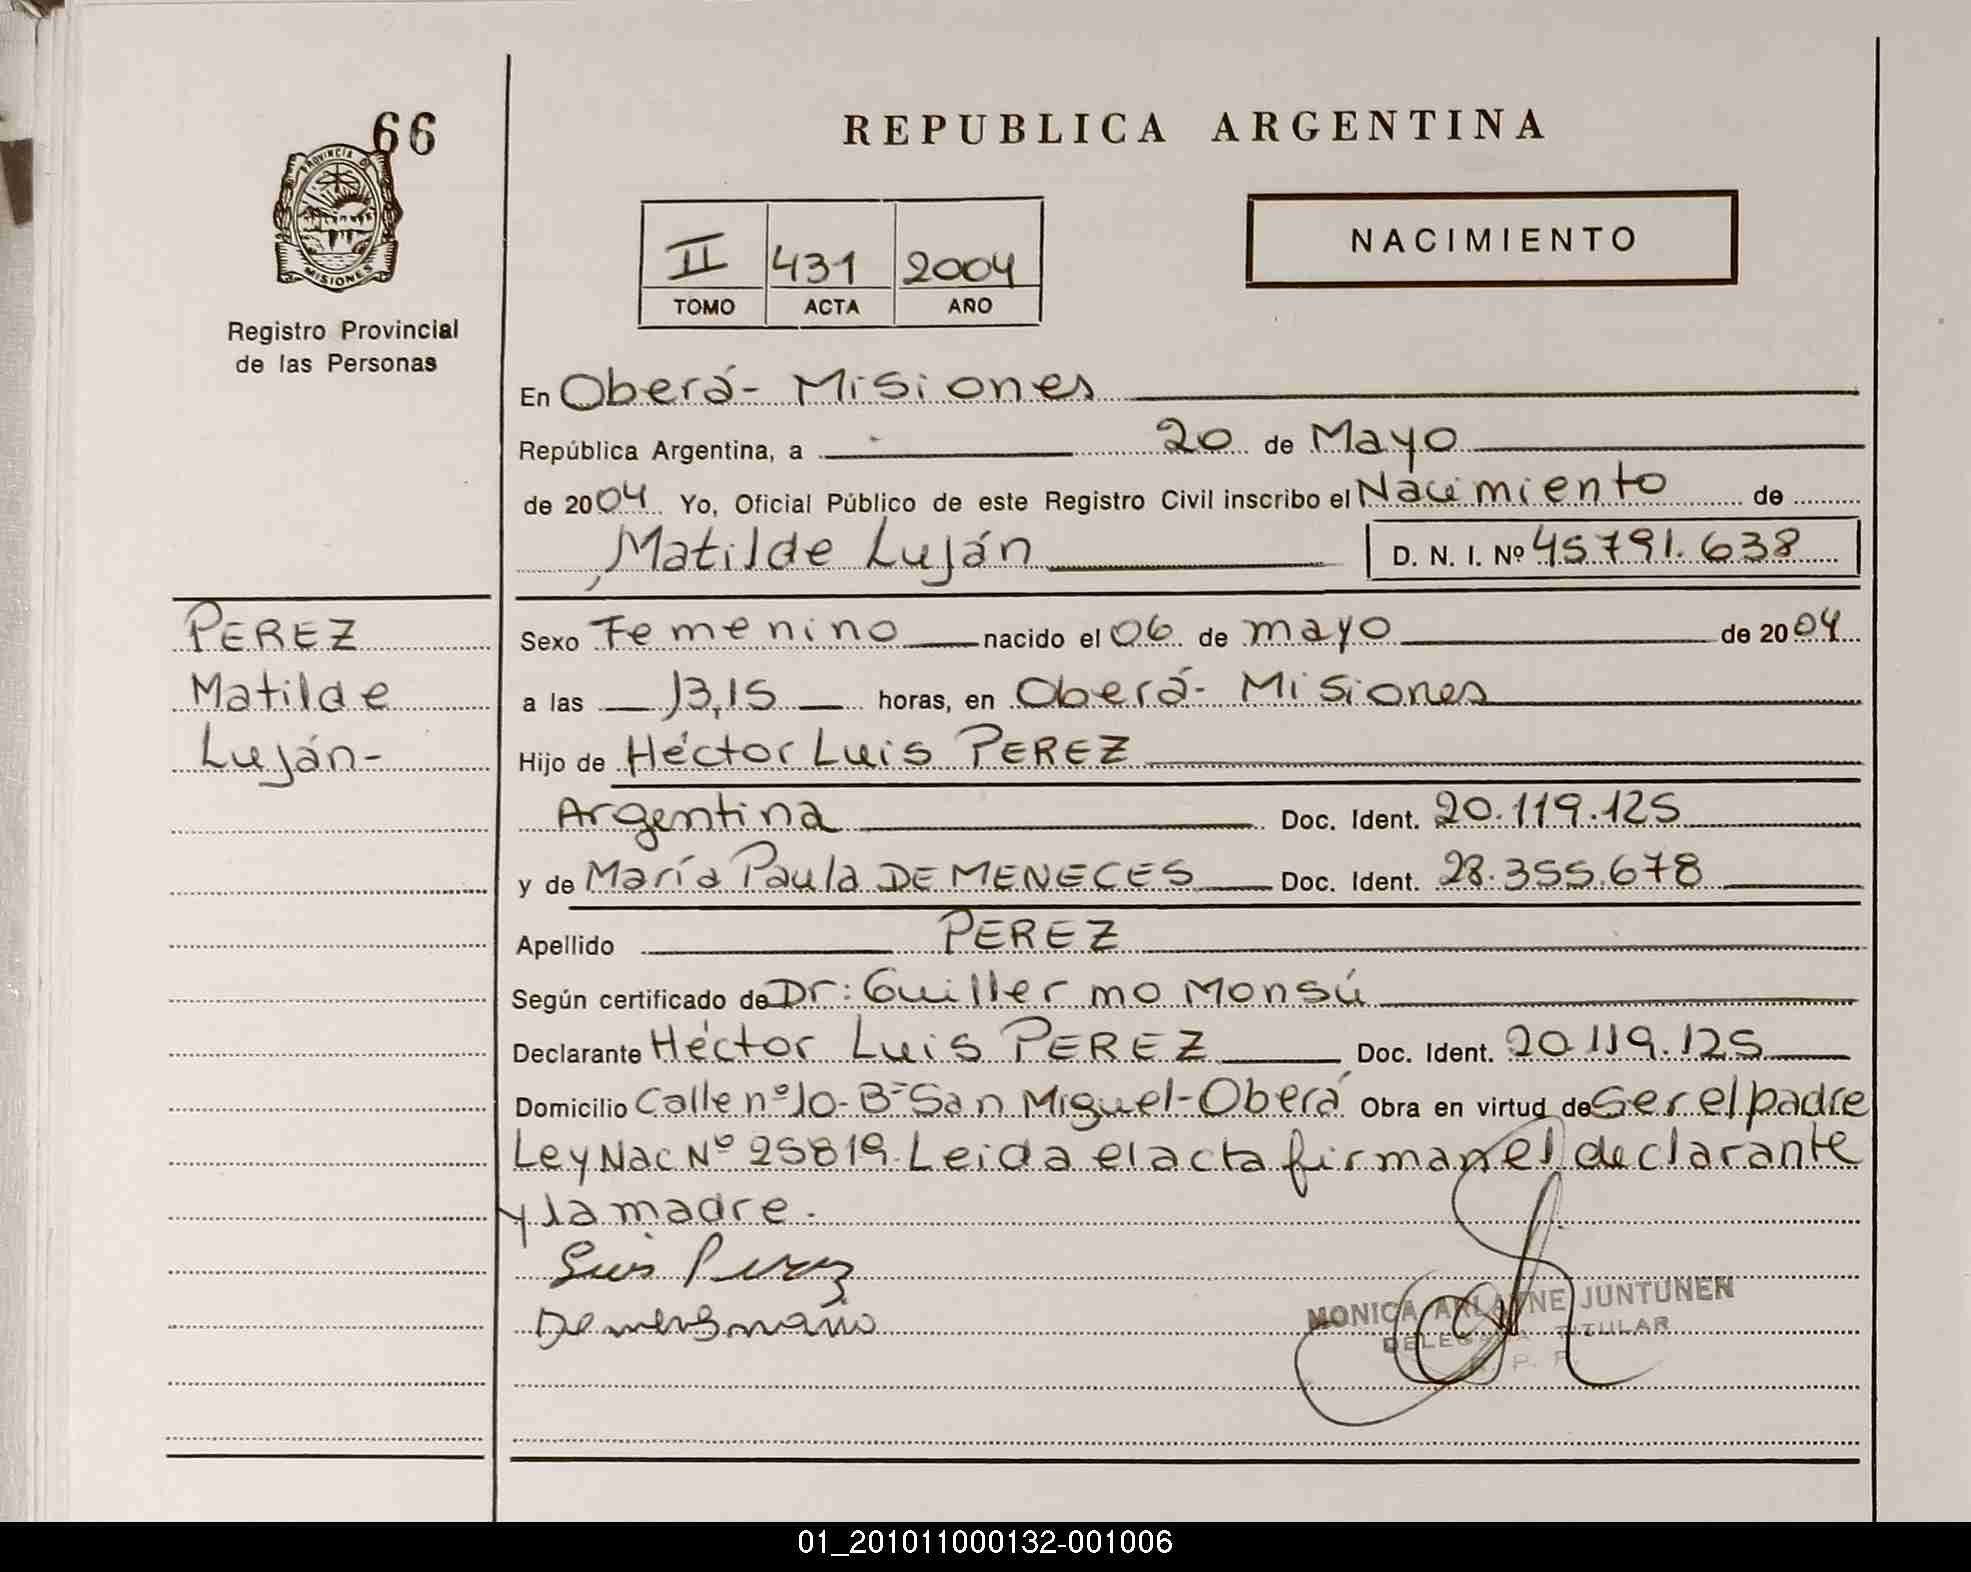 66
PROVINCIA DE
MISIONES
Registro Provincial
de las Personas
REPUBLICA ARGENTINA
NACIMIENTO
II 431 2004
TOMO ACTA AÑO
En Oberá- Misiones
República Argentina, a 20 de Mayo
de 2004 Yo, Oficial Público de este Registro Civil inscribo el Nacimiento de
Matilde Luján D. N. I. Nº 45791.638
PEREZ
Matilde
Luján-
Sexo Femenino nacido el 06 de mayo de 2004
a las 13,15 horas, en Oberá- Misiones
Hijo de Héctor Luis PEREZ
Argentina Doc. Ident. 20.119.125
y de María Paula DE MENECES Doc. Ident. 28.355.678
Apellido PEREZ
Según certificado de Dr: Guillermo Monsú
Declarante Héctor Luis PEREZ Doc. Ident. 20.119.125
Domicilio Calle nº10-Bº San Miguel-Oberá Obra en virtud de Ser el padre
Ley Nac Nº 25819. Leida el acta firman el declarante
y la madre.
Luis Perez
MONICA ARLAYNE JUNTUNEN
DELEGADA TITULAR
R. P. P.
01_201011000132-001006